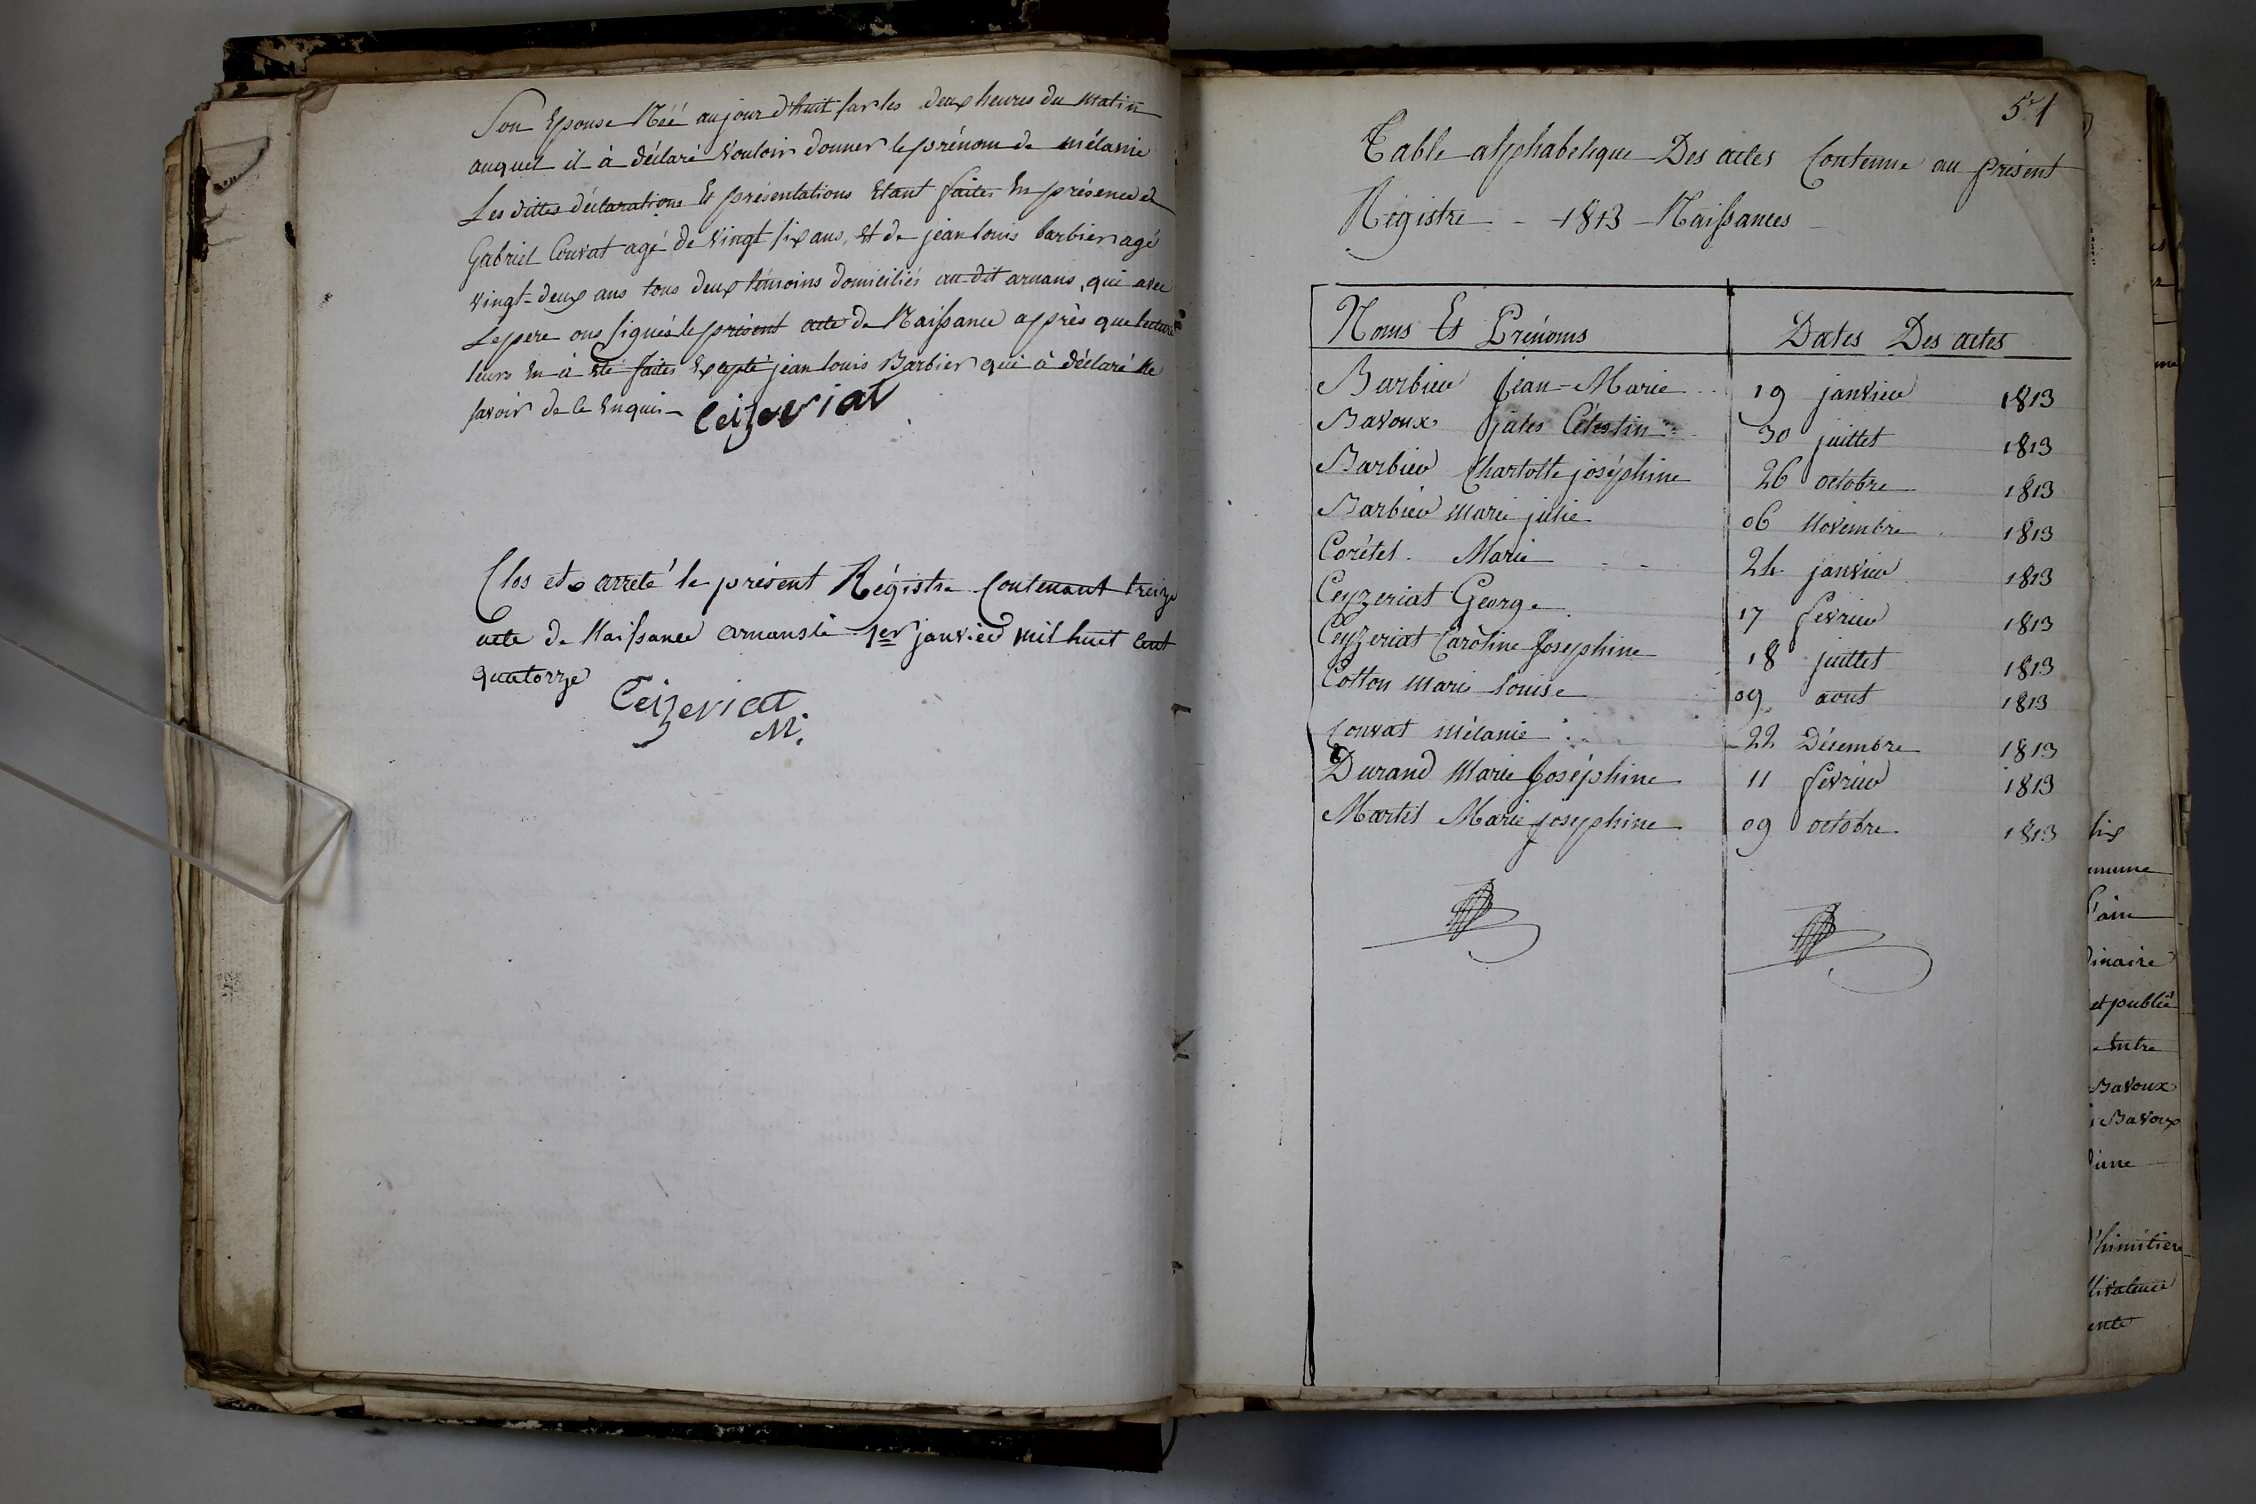 Son Epouse Néé aujourd'huit sur les deux heures du matin
auquel il à déclaré vouloir donner le prénom de mélanie
Les dittes déclarations Et présentations Etant faites En présence de
Gabriel Couvat agé de vingt six ans, Et de jean louis barbier agé
vingt-deux ans tous deux témoins domiciliés au dit arnans, qui avec
Le pere ons signés le présent acte de Naissance après que lecture
leurs En à Eté faites Excepté jean louis Barbier qui à déclaré Ne
savoir de ce Enquis
Ceizeriat
Clos et arreté le présent Régistre Contenant treize
acte de Naissance arnans le 1er janvier mil huit Cent
quatorze
Ceizeriat
M.
51
Table alphabetique Des actes Contenue au présent
Régistre - 1813 - Naissances
Noms Et Prénoms Dates Des actes
Barbier Jean-Marie 19 janvier 1813
Bavoux Célestin 30 juillet 1813
Barbier Charlotte joséphine 26 octobre 1813
Barbier marie julie 06 Novembre 1813
Corétet Marie 24 janvier 1813
Ceyzeriat George 17 février 1813
Ceyzeriat Caroline Josephine 18 juillet 1813
Cotton marie louise 09 aout 1813
Couvat mélanie 22 Décembre 1813
Durand Marie Joséphine 11 février 1813
Martel Marie josephine 09 octobre 1813
six
mmune
l'ain
dinaire
et publié
Entre
Bavoux
Bavoux